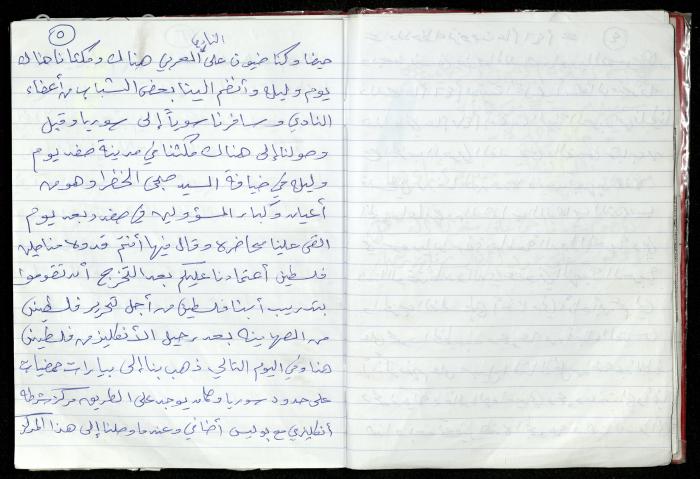 ٥
النادي
حيفا وكنا ضيوف على العربي هناك ومكثنا هناك
يوم وليله وأنظم الينا بعض الشباب من أعضاء
النادي وسافرنا سوياً إلى سوريا وقبل
وصولنا إلى هناك مكثنا في مدينة صفد يوم
وليله في ضيافة السيد صبحي الخظرا وهو من
أعيان وكبار المسؤولين في صفد وبعد يوم
القى علينا محاضره وقال فيها أنتم قدوه مناضلين
فلسطين أعتمادنا عليكم بعد التخرج أن تقوموا
بتدريب أبنا فلسطين من أجل تحرير فلسطين
من الصهاينه بعد رحيل الأنكليز من فلسطين
هنا وفي اليوم التالي ذهب بنا إلى بيارات حمضيات
على حدود سوريا وكان يوجد على الطريق مركز شرطة
أنكليزي مع بوليس أضافي وعندما وصلنا إلى هذا المركز